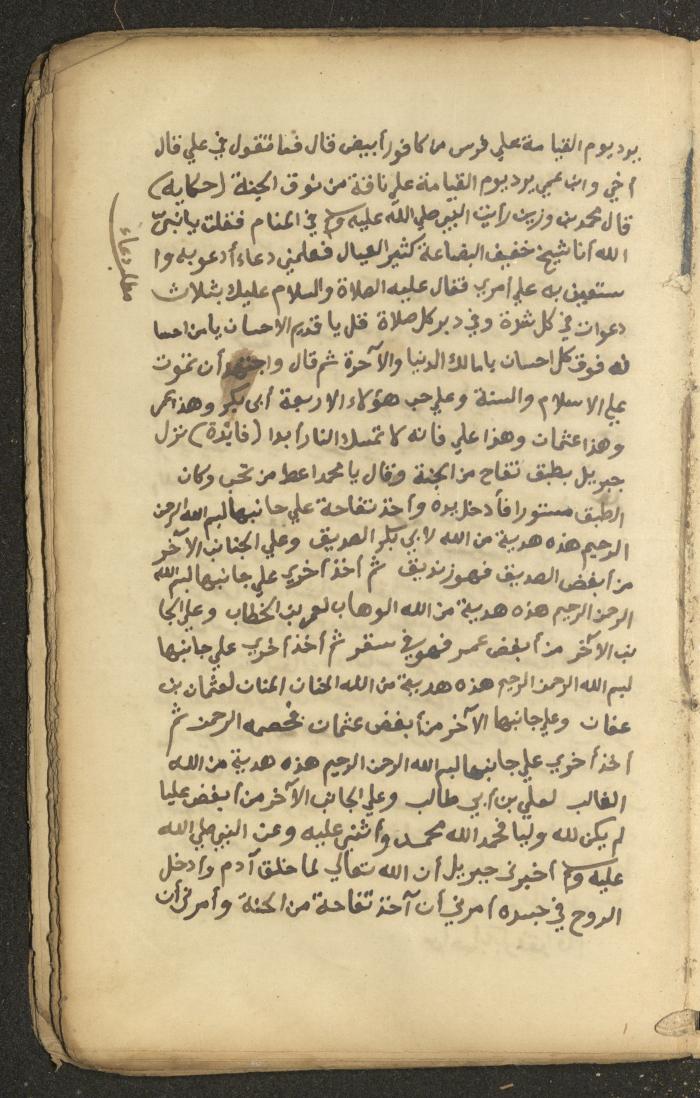 يرد يوم القيامة علي فرس من كافور أبيض قال فما تقول في علي قال
أخي وابن عمي يرد يوم القيامة علي ناقة من نوق الجنة (حكاية)
قال محمد بن وزير رأيت النبي صلي الله عليه وسلم في المنام فقلت يا نبي
الله أنا شيخ خفيف البضاعة كثير العيال فعلمني دعاء أدعو به وا
ستعين به علي أمري فقال عليه الصلاة والسلام عليك بثلاث
مطلب دعاء
دعوات في كل شدة وفي دبر كل صلاة قل يا قديم الاحسان يا من احسا
نه فوق كل احسان يا مالك الدنيا والآخرة ثم قال واجتهد أن تموت
علي الاسلام والسنة وعلي حب هؤلاء الاربعة أبي بكر وهذا عمر
وهذا عثمان وهذا علي فانه لا تمسك النار أبدا (فايدة) نزل
جبريل بطبق تفاح من الجنة وقال يا محمد اعط من تحب وكان
الطبق مستورا فأدخل يده وأخذ تفاحة علي جانبها بسم الله الرحمن
الرحيم هذه هدية من الله لابي بكر الصديق وعلي الجانب الآخر
من أبغض الصديق فهو زنديق ثم أخذ أخري علي جانبها بسم الله
الرحمن الرحيم هذه هدية من الله الوهاب لعمر بن الخطاب وعلي الجا
نب الآخر من أبغض عمر فهو في سقر ثم أخذ أخري علي جانبها
بسم الله الرحمن الرحيم هذه هدية من الله الحنان المنان لعثمان بن
عفان وعلي جانبها الآخر من أبغض عثمان فخصمه الرحمن ثم
أخذ أخري علي جانبها بسم الله الرحمن الرحيم هذه هدية من الله
الغالب لعلي بن أبي طالب وعلي الجانب الآخر من أبغض عليا
لم يكن لله وليا فحمد الله محمد وأثني عليه وعن النبي صلي الله
عليه وسلم أخبرني جبريل أن الله تعالي لما خلق آدم وأدخل
الروح في جسده أمرني أن آخذ تفاحة من الجنة وأمرني أن